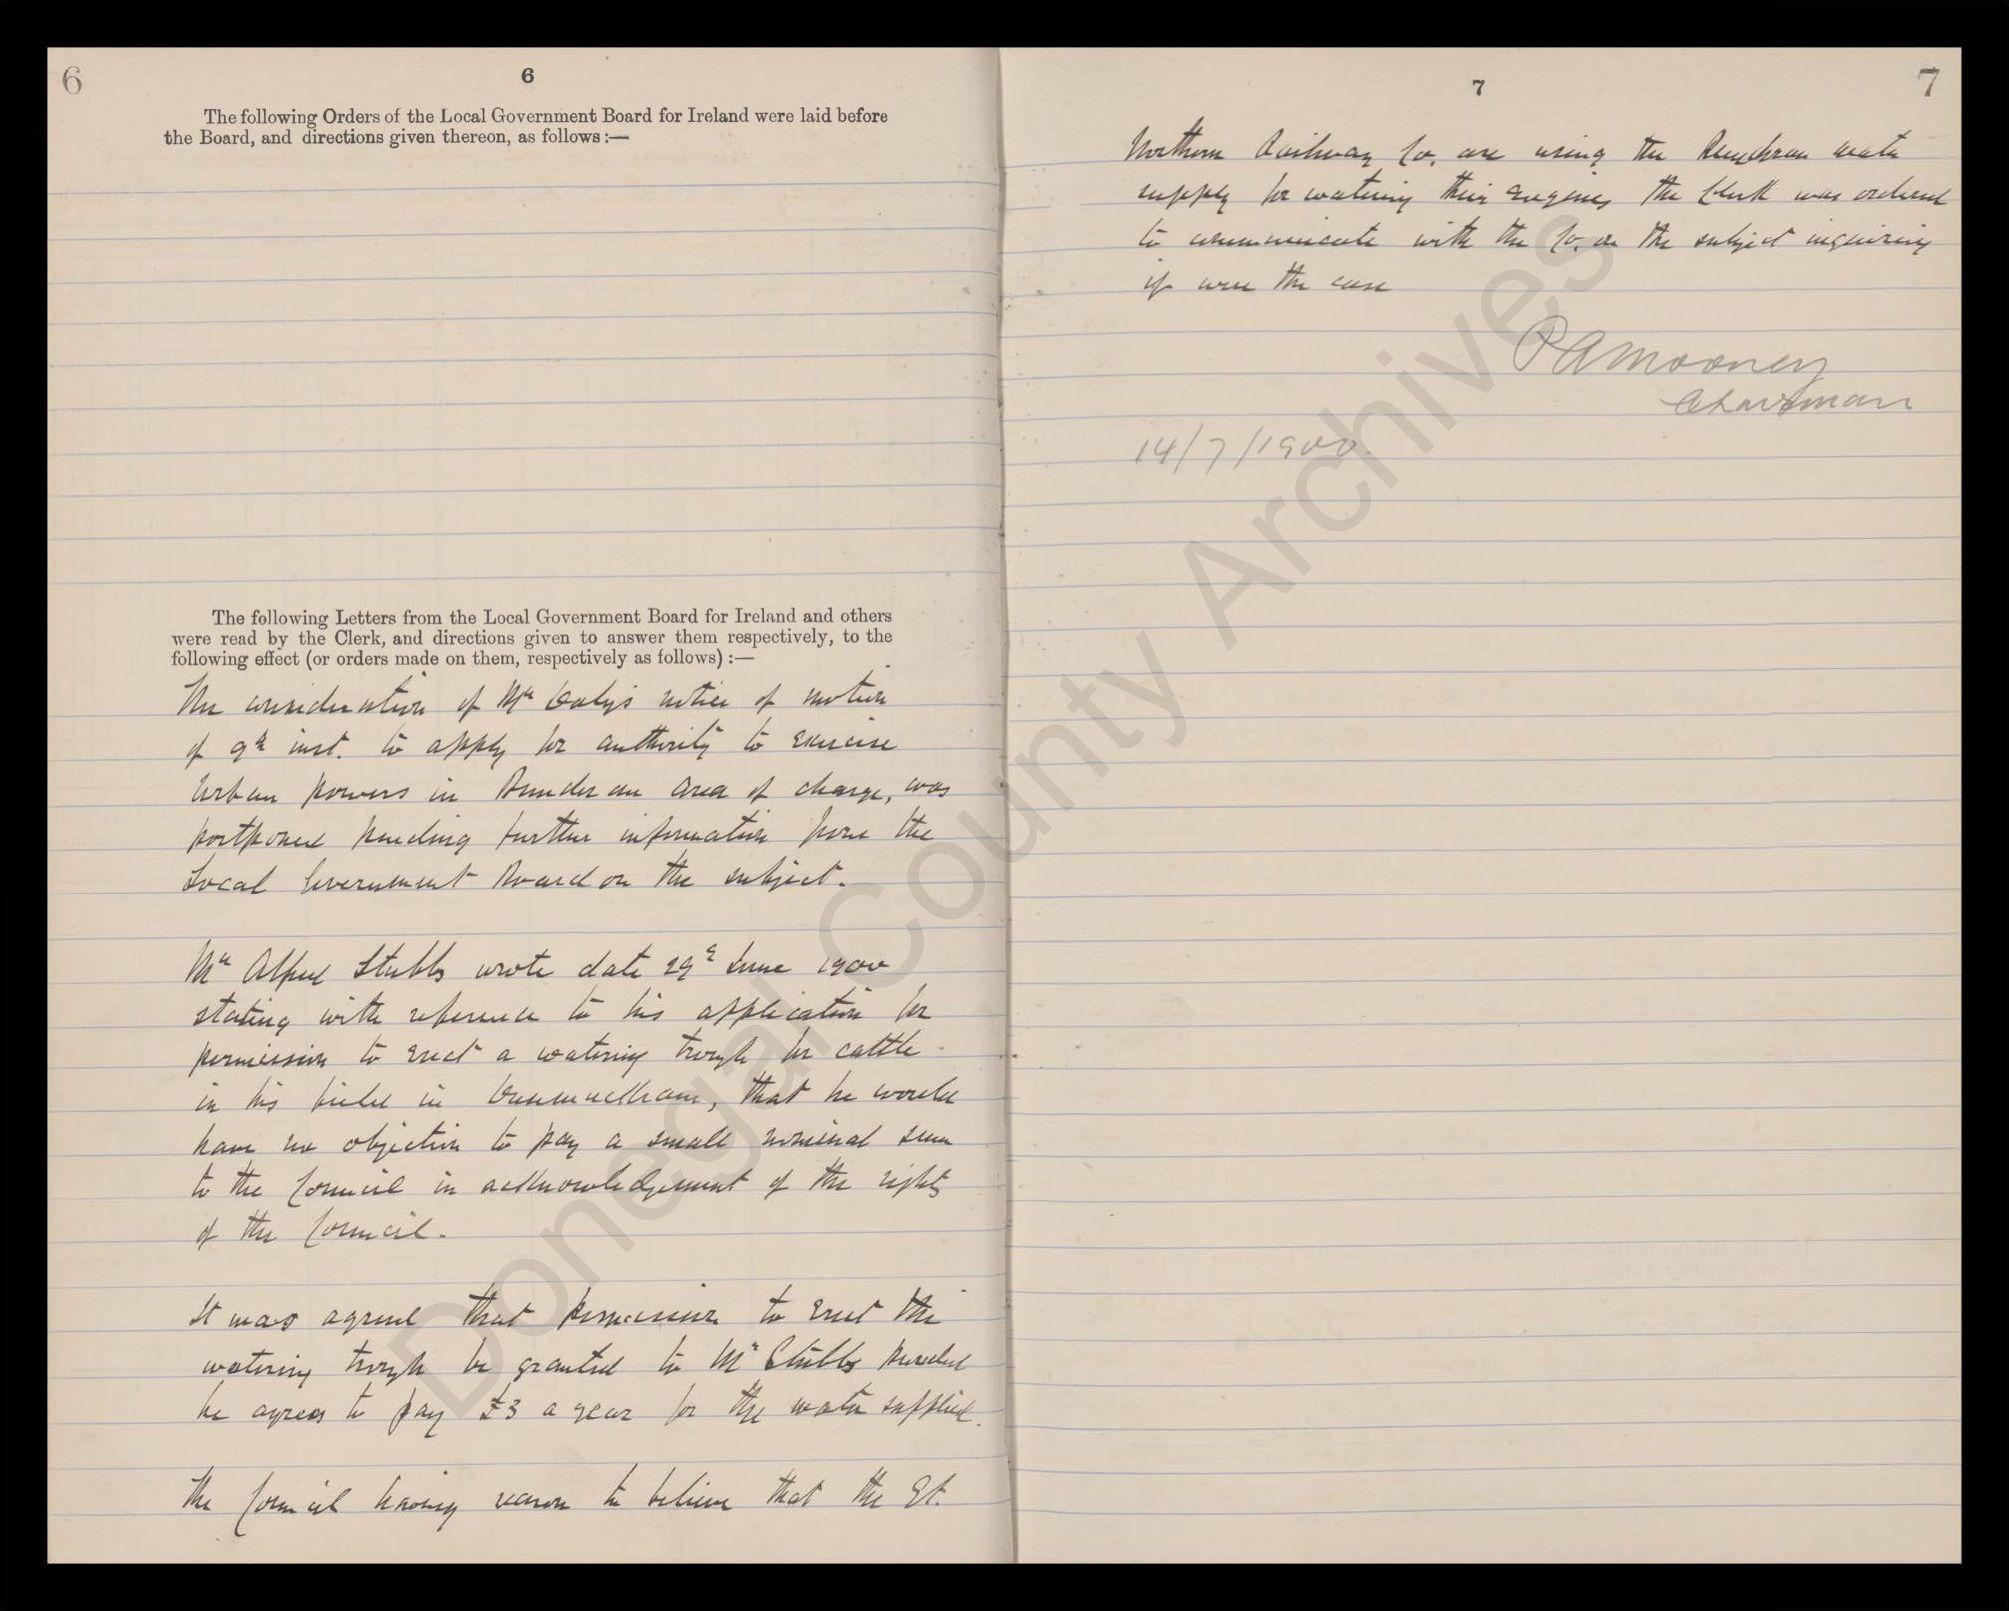 6
6
The following Orders of the Local Government Board for Ireland were laid before
the Board, and directions given thereon, as follows :—
The following Letters from the Local Government Board for Ireland and others
were read by the Clerk, and directions given to answer them respectively, to the
following effect (or orders made on them, respectively as follows) :—
The consideration of Mr Daly's notice of motion
of 9th inst. to apply for authority to exercise
Urban powers in Bundoran area of charge, was
postponed pending further information from the
Local Government Board on the subject.
Mr Alfred Stubbs wrote date 29th June 1900
stating with reference to his application for
permission to erect a watering trough for cattle
in his field in, that he would
have no objection to pay a small nominal sum
to the Council in acknowledgement of the rights
of the Council.
It was agreed that permission to erect the
watering trough be granted to Mr Stubbs provided
he agrees to pay £3 a year for the water supplied.
The Council having reason to believe that the Gt.
7
7
Northern Railway Co. are using the Bundoran water
supply for watering their engines the Clerk was ordered
to communicate with the Co. on the subject inquiring
if were the case
P A Mooney
Chairman
14/7/1900
Donegal County Archives